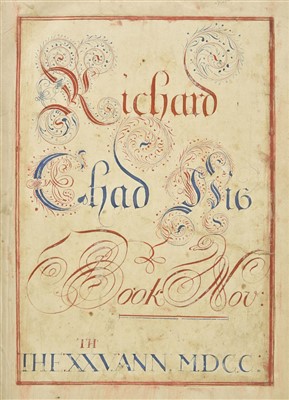 Richard
Chad His
Book Nov:
TH
THE XXV ANN. M.DCC.